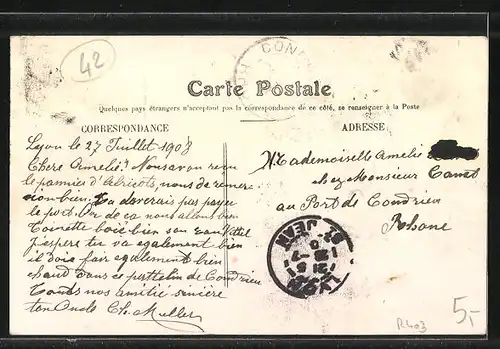 42
CON
Carte Postale
Quelques pays étrangers n'acceptant pas la correspondance de ce côté, se renseigner à la Poste
CORRESPONDANCE
ADRESSE
Lyon le 27 Juillet 1908
Chere Amelie! Nous avon reçu
le pannier d'Abricots, nous de remer
cion bien, Ta deverais pas payer
le port. Or de ca nous allons bien
Toinette boie bien son eau Vittel
J'espère ter va egalement bien
il dois fair egalement bien
chaud dans ce petit lin de Condrieu
Touts nos amitié sincère
ton Oncle Ch. Muller
Mademoiselle Amelie
chez Monsieur Canot
au Port de Condrieu
Rhone
LYON
ST JEAN
R403
5,-